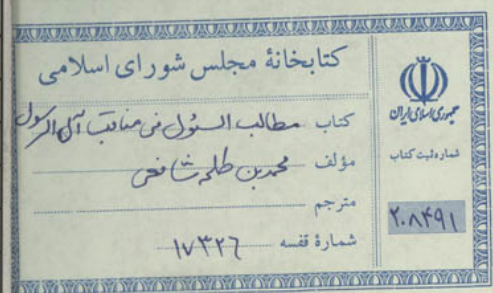 کتابخانهٔ مجلس شورای اسلامی
کتاب مطالب السؤول فی مناقب آل الرسول
مؤلف محمد بن طلحه شافعی
مترجم
شمارهٔ قفسه ۱۷۳۲۶
جمهوری اسلامی ایران
شماره ثبت کتاب
۲۰۸۴۹۱